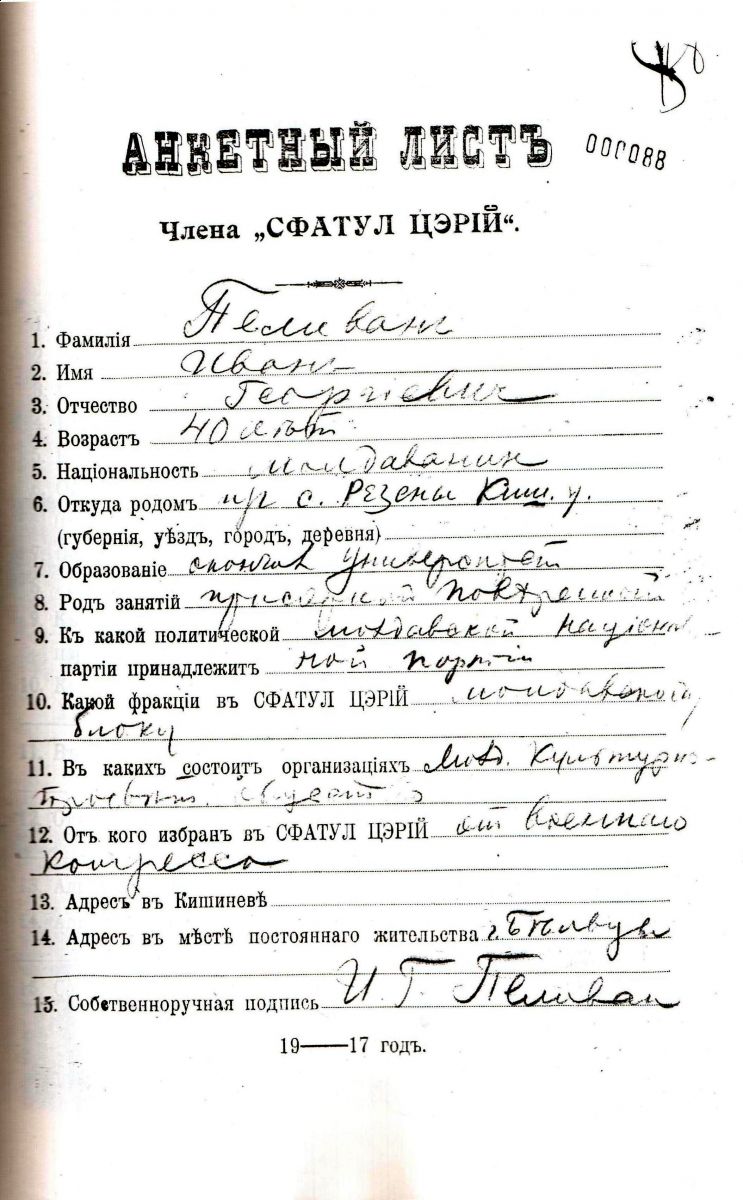 АНКЕТНЫЙ ЛИСТЪ
000088
Члена „СФАТУЛ ЦЭРІЙ“.
1. Фамилія Пеливанъ
2. Имя Иванъ
3. Отчество Георгіевич
4. Возрастъ 40 лѣтъ
5. Національность молдаванин
6. Откуда родомъ с. Резены Киш. у.
(губернія, уѣздъ, городъ, деревня)
7. Образованіе окончил университет
8. Родъ занятій присяжный повѣренный
9. Къ какой политической молдавской націонал
партіи принадлежитъ ной партіи
10. Какой фракціи въ СФАТУЛ ЦЭРІЙ молдавскому
блоку
11. Въ какихъ состоитъ организаціяхъ Молд. Культурно-
12. Отъ кого избран въ СФАТУЛ ЦЭРІЙ от военнаго
Конгресса
13. Адресъ въ Кишиневѣ
14. Адресъ въ мѣстѣ постояннаго жительства г.
15. Собственноручная подпись И. Г. Пеливан
19—17 годъ.